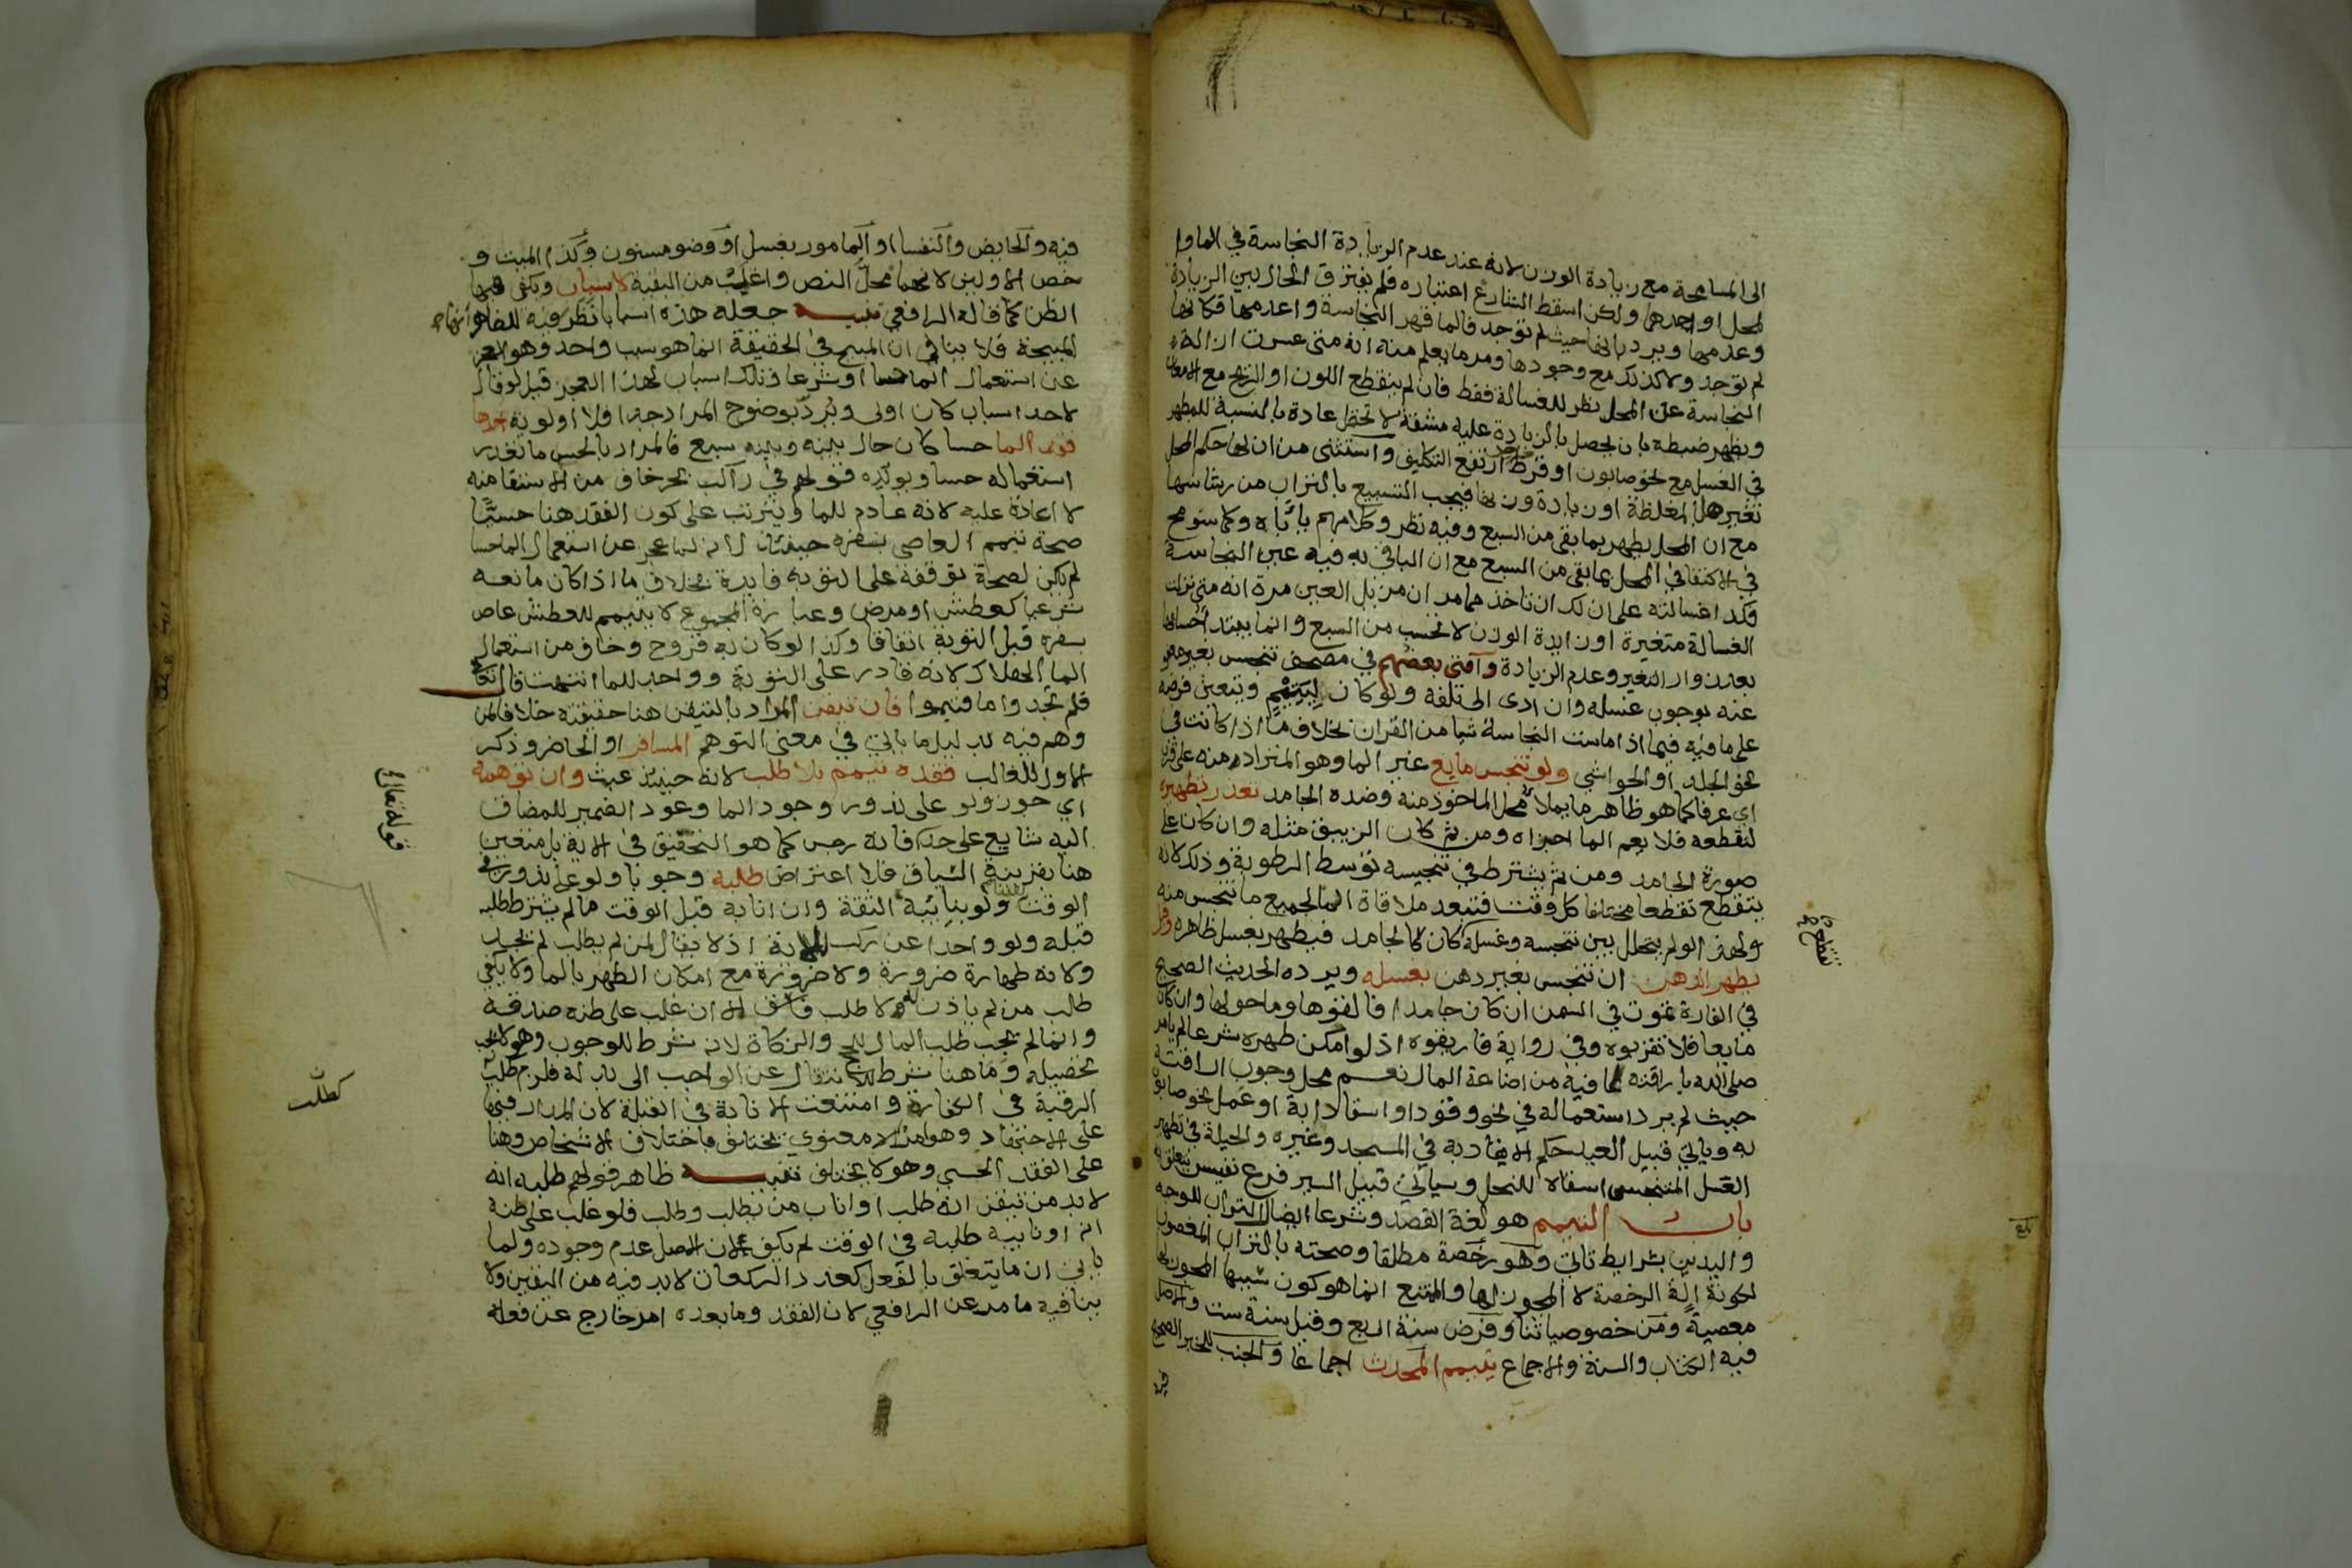 الى المسامحة مع زيادة الوزن لانه عند عدم الزيادة النجاسة في الما وا
لمحل او احدهما ولكن اسقط الشارع اعتباره فلم يفترق الحال بين الزيادة
وعدمها ويرد بانها حيث لم توجد فالما قهر النجاسة واعدمها فكانها
لم توجد ولا كذلك مع وجودها ومر ما يعلم منه انه متى عسرت ازالة
النجاسة عن المحل نظر للغسالة فقط فان لم ينقطع اللون او الريح مع الامعان
ويظهر ضبطه بان يحصل بالزيادة عليه مشقة لا تحتمل عادة بالنسبة للمطهر
في الغسل مع نحو صابون او قرظ ارتفع التكليف واستثنى من ان لها حكم المحل
تغير المغلظة او زيادة وزنها فيجب التسبيع بالتراب من رشاشها
مع ان المحل يطهر بما بقي من السبع وفيه نظر وكلامهم ياباه وكما سومح
في الاكتفا في المحل بما بقي من السبع مع ان الباقي به فيه عين النجاسة
فكذا غسالته على ان لك ان تاخذ مما مر ان مزيل العين مرة انه متى نزلت
الغسالة متغيرة او زايدة الوزن لا تحسب من السبع وانما يبتدا حسابها
بعد زوال التغير وعدم الزيادة وافتى بعضهم في مصحف تنجس بغير معفو
عنه بوجوب غسله وان ادى الى تلفه ولو كان ليتيم ويتعين فرضه
على ما فيه فيما اذا مست النجاسة شيا من القران بخلاف ما اذا كانت في
نحو الجلد او الحواشي ولو تنجس مايع غير الما وهو المتراد منه على قرب
اي عرفا كما هو ظاهر ما يملا محل الماخوذ منه وضده الجامد تعذر تطهيره
لتقطعه فلا يعم الما اجزاه ومن ثم كان الزيبق مثله وان كان على
صورة الجامد ومن ثم يشترط في تنجيسه توسط الرطوبة وذلك لانه
يتقطع تقطعا مختلفا كل وقت فتبعد ملاقاة الما لجميع ما تنجس منه
ولهذا لو لم يتخلل بين تنجسه وغسله كان كالجامد فيطهر بغسل ظاهره وقيل
يطهر الدهن ان تنجس بغير دهن بغسله ويرده الحديث الصحيح
في الفارة تموت في السمن ان كان جامدا فالقوها وما حولها وان كان
مايعا فلا تقربوه وفي رواية فاريقوه اذ لو امكن طهره شرعا لم يامر
صلى الله باراقته لما فيه من اضاعة المال نعم محل وجوب اراقته
حيث لم يرد استعماله في نحو وقود او اسقا دابة او عمل نحو صابون
به وياتي قبيل العيد حكم الايقاد به في المسجد وغيره والحيلة في تطهير
العسل المتنجس اسقاه للنحل وسياتي قبيل السير فرع نفيس يتعلق به
باب التيمم هو لغة القصد وشرعا ايصال التراب للوجه
واليدين بشرايط تاتي وهو رخصة مطلقا وصحته بالتراب المغصوب
لكونه الة الرخصة لا المجوز لها والممتنع انما هو كون سببها المجوز لها
معصية ومن خصوصياتنا وفرض سنة اربع وقيل سنة ست والاصل
فيه الكتاب والسنة والاجماع يتيمم المحدث اجماعا والجنب للخبر الصحيح
فيه
فيه والحايض والنفسا والمامور بغسل او وضو مسنون وكذا الميت و
خص الاولين لانهما محل النص واغلب من البقية لاسباب ويكفي فيها
الظن كما قاله الرافعي تنبيه جعله هذه اسبابا نظر فيه للظاهر انها
المبيحة فلا ينافي ان المبيح في الحقيقة انما هو سبب واحد وهو العجز
عن استعمال الما حسا او شرعا وتلك اسباب لهذا العجز قيل لو قال
لاحد اسباب كان اولى ويرد بوضوح المراد جدا فلا اولوية احدها
فقد الما حسا كان حال بينه وبينه سبع فالمراد بالحس ما تعذر
استعماله حسا ويويده قولهم في راكب بحر خاف من الاستقا منه
لا اعادة عليه لانه عادم للما ويترتب على كون الفقد هنا حسيا
صحة تيمم العاصي بسفره حينئذ لانه لما عجز عن استعمال الما حسا
لم يكن لصحة توقفه على التوبة فايدة بخلاف ما اذا كان مانعه
شرعيا كعطش او مرض وعبارة المجموع لا يتيمم للعطش عاص
بسفره قبل التوبة اتفاقا وكذا لو كان به قروح وخاف من استعمال
الما الهلاك لانه قادر على التوبة وواجد للما انتهت قال تعالى
فلم تجدوا ما فتيمموا فان تيقن المراد باليقين هنا حقيقته خلافا لمن
وهم فيه بدليل ما ياتي في معنى التوهم المسافر او الحاضر وذكر
الاول للغالب فقده تيمم بلا طلب لانه حينئذ عبث وان توهمه
اي جوز ولو على ندور وجود الما وعود الضمير للمضاف
اليه شايع على حد فانه رجس كما هو التحقيق في الاية بل متعين
هنا بقرينة السياق فلا اعتراض طلبه وجوبا ولو على ندور في
الوقت ولو بنايبه الثقة وان انابه قبل الوقت ما لم يشترط طلبه
قبله ولو واحدا عن ركب للاية اذ لا يقال لمن لم يطلب لم يجد
ولانه طهارة ضرورة ولا ضرورة مع امكان الطهر بالما ولا يكفي
طلب من لم ياذن له ولا طلب فاسق الا ان غلب على ظنه صدقه
وانما لم يجب طلب المال للحج والزكاة لانه شرط للوجوب وهو لا يجب
تحصيله وما هنا شرط للانتقال عن الواجب الى بدله فلزم كطلب
الرقبة في الكفارة وامتنعت الانابة في القبلة لان المدار فيها
على الاجتهاد وهو امر معنوي يختلف باختلاف الاشخاص وهنا
على الفقد الحسي وهو لا يختلف تنبيه ظاهر قولهم طلبه انه
لا بد من تيقن انه طلب او اناب من يطلب وطلب فلو غلب على ظنه
انه او نايبه طلبه في الوقت لم يكف لان الاصل عدم وجوده ولما
ياتي ان ما يتعلق بالفعل كعدد الركعات لا بد فيه من اليقين ولا
ينافيه ما مر عن الرافعي لان الفقد وما بعده امر خارج عن فعله
قوله تعالى
كطلب